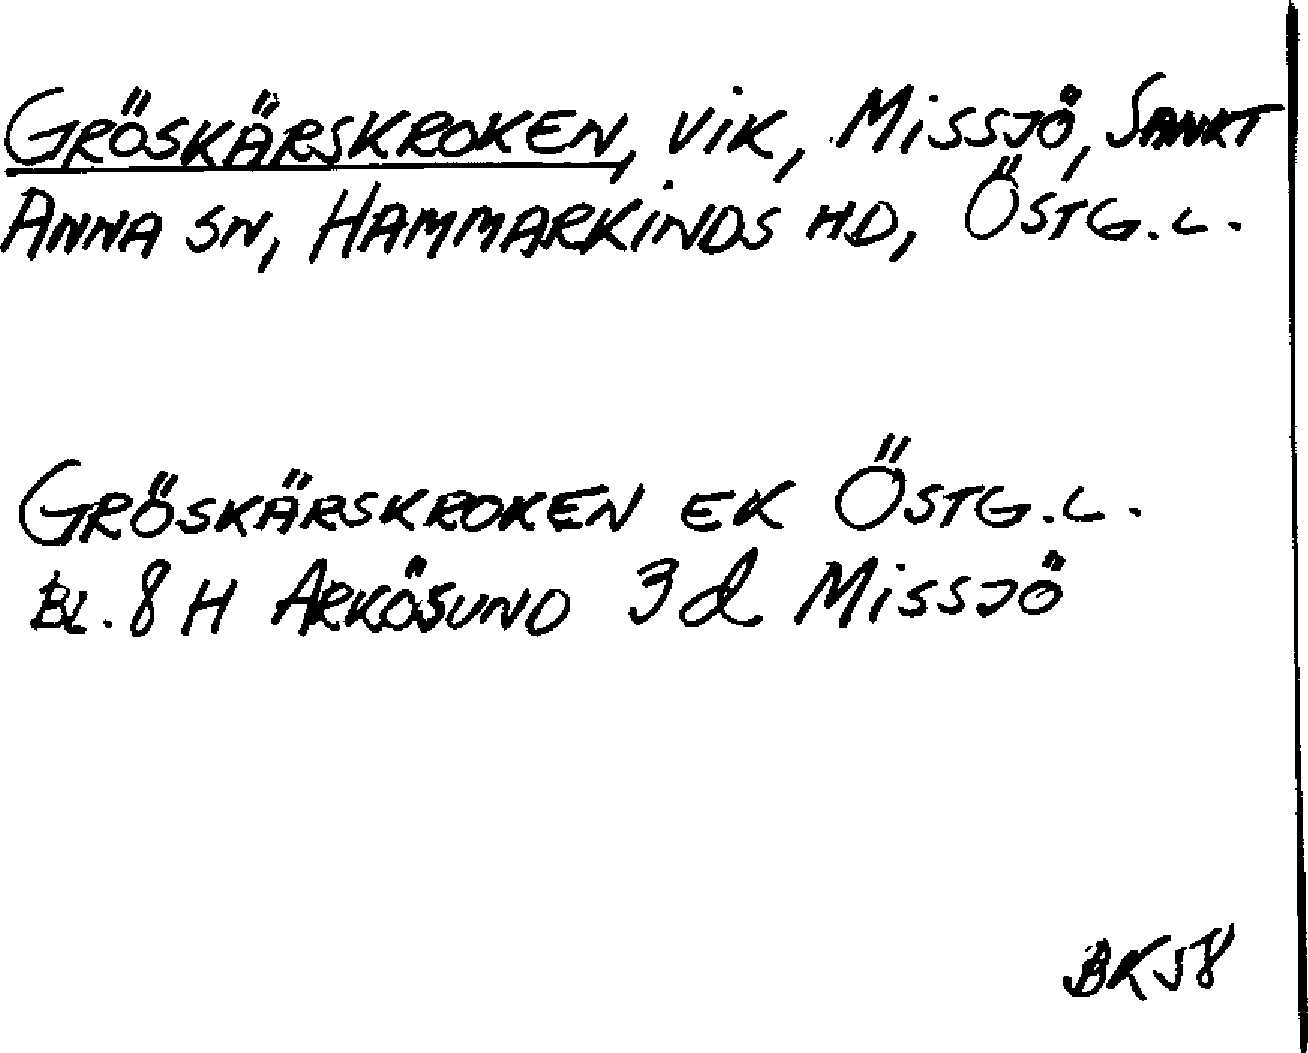 GRÖSKÄRSKROKEN, VIK, MISSJÖ, SANKT
ANNA SN, HAMMARKINDS HD, ÖSTG.L.
GRÖSKÄRSKROKEN EK ÖSTG.L.
BL. 8 H ARKÖSUND 3d MISSJÖ
BK58